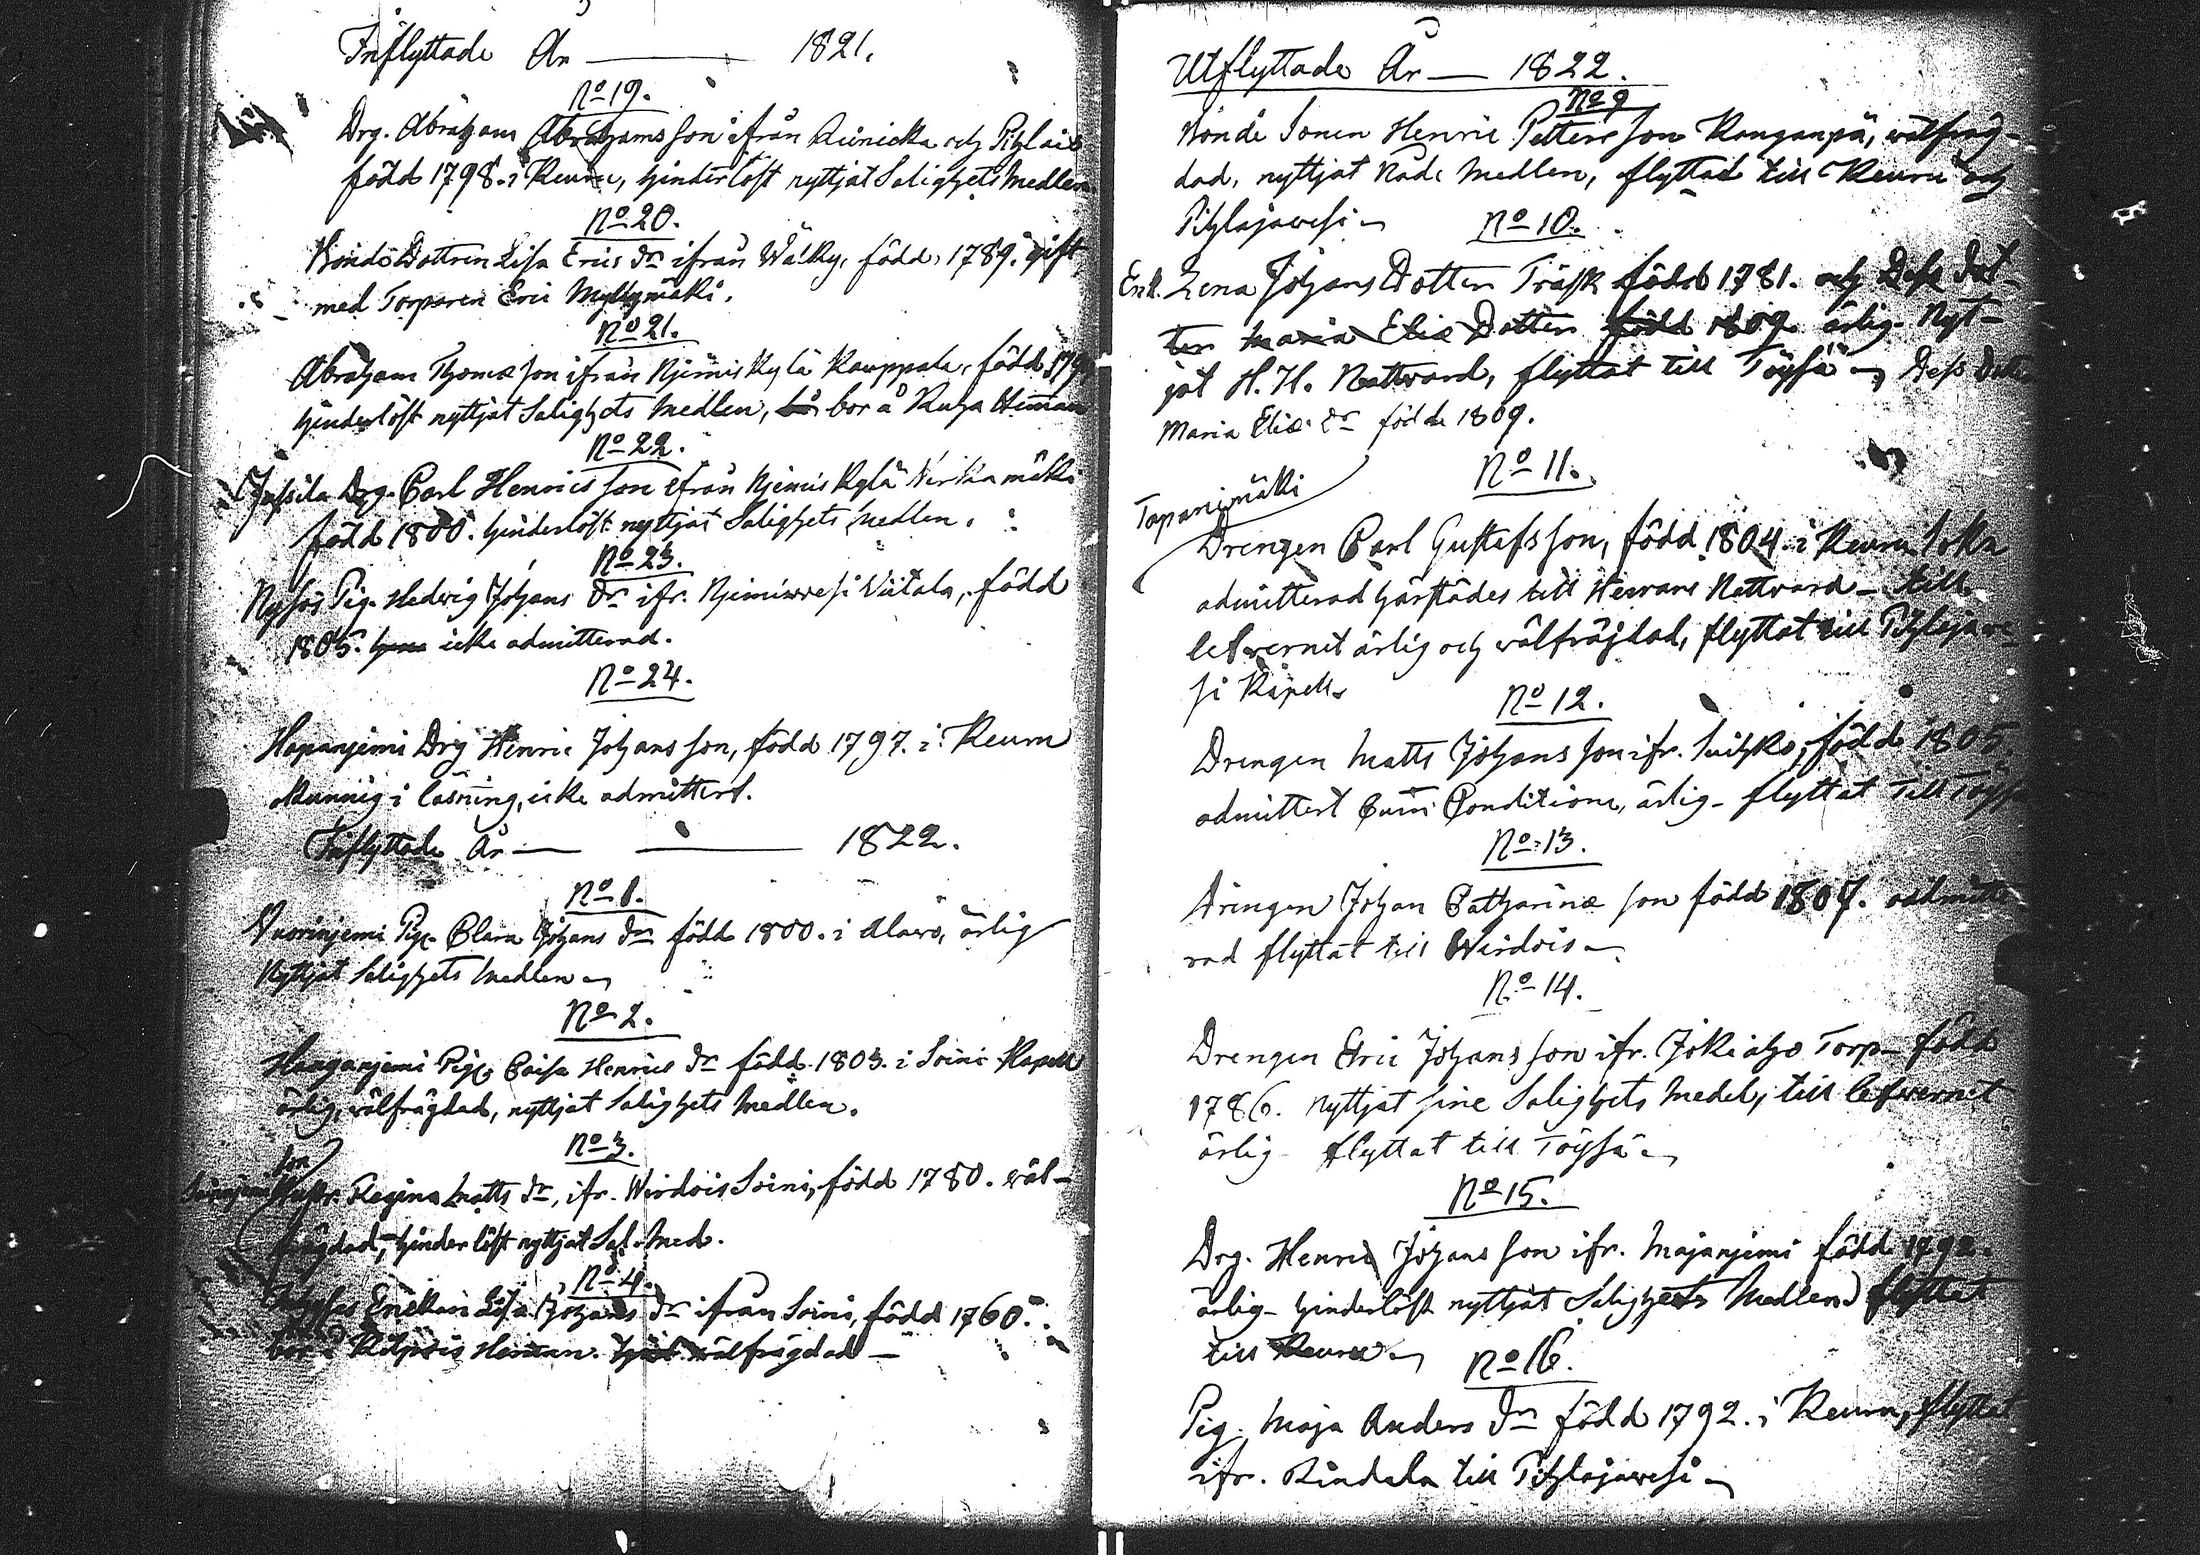 Inflyttade År 1821.
No 19.
Drg. Abraham Abrahams son ifrån och
född 1798. i Keuru, hinderlöst nyttjat Salighets Medlen
No 20.
Bonde Dottren Lisa Erics dr ifrån Wälky, född 1789. gift
med Torparen Eric Myllymäki.
No 21.
Abraham Thomæ son ifrån Njemis Kylä Kauppala, född
hinderlöst nyttjat Salighets Medlen, bor å Ruha Heman
No 22.
Jussila Drg. Carl Henrics son ifrån Njemis Kylä mäki
född 1800. hinderlöst nyttjat Salighets medlen.
No 23.
Pig. Hedvig Johans dr ifr. Njemiswesi Viitala, född
1805. icke admitterad.
No 24.
Hapanjemi Drg Henric Johans son, född 1797. i Keuru
okunnig i läsning, icke admittert.
Inflyttade År 1822.
No 1.
Vuorinjemi Pig. Clara Johans dr född 1800. i Alavo, ärlig
Nyttjat Salighets Medlen
No 2.
Haaganjemi Pig. Caisa Henrics dr född 1803. i Soini Kapell
ärlig, välfrägdad, nyttjat Salighets Medlen.
No 3.
Regina Matts dr, ifr. Wirdois Soini, född 1780. väl-
frägdad, hinderlöst nyttjat Sal. Med.
No 4.
Enckan Lisa Johans dr ifrån Soini, född 1760.
Heman. välfrägdad
Utflyttade År 1822.
No 9
Bonde Sonen Henric Petters son Kanganpä, välfräg-
dad, nyttjat Nåde Medlen, flyttad till Keuru och
Pihlajawesi
No 10.
Enk. Lena Johans Dotter Träsk född 1781. och Dess Dot-
ter Maria Eliæ Dotter född 1809 ärlig. Nyt-
jat H. H. Nattvard, flyttat till Töysä Dess Dotter
Maria Eliæ dr född 1809.
No 11.
Tapanimäki
Drengen Carl Gustafs son, född 1804. i Keuru
admitterad härstädes till Herrans Nattvard till
lefvernet ärlig och välfrägdad, flyttat till Pihlajawe-
si Kapell
No 12.
Drengen Matts Johans son ifr. född 1805
admittert Cum Conditione, ärlig flyttat till Töysä
No 13.
Drengen Johan Catharinæ son född 1807. admitte-
rad flyttat till Wirdois
No 14.
Drengen Eric Johans son ifr. Jokiaho Torp född
1786. nyttjat sine Salighets Medel, till lefvernet
ärlig flyttat till Töysä
No 15.
Drg. Henric Johans son ifr. Majanjemi född 1792.
ärlig hinderlöst nyttjat Salighets Medlen flyttat
till Keuru
No 16.
Pig. Maja Anders dr född 1792. i Keuru, flyttat
ifr. Rindala till Pihlajawesi